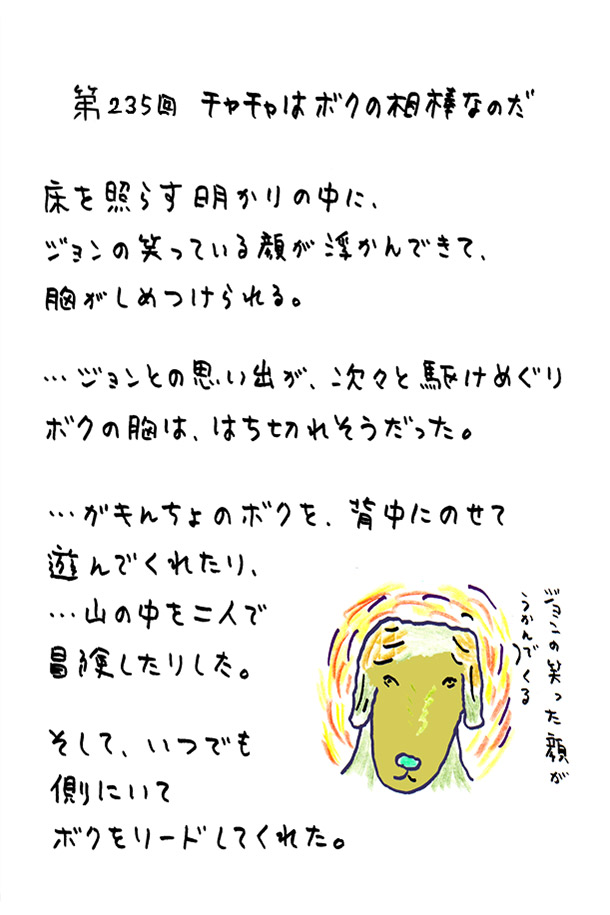 第235回 チャチャはボクの相棒なのだ
床を照らす明かりの中に、
ジョンの笑っている顔が浮かんできて、
胸がしめつけられる。
…ジョンとの思い出が、次々と駆けめぐり
ボクの胸は、はち切れそうだった。
…がキんちょのボクを、背中にのせて
遊んでくれたり、
…山の中を二人で
冒険したりした。
そして、いつでも
側にいて
ボクをリードしてくれた。
ジョンの笑った顔が
うかんでくる